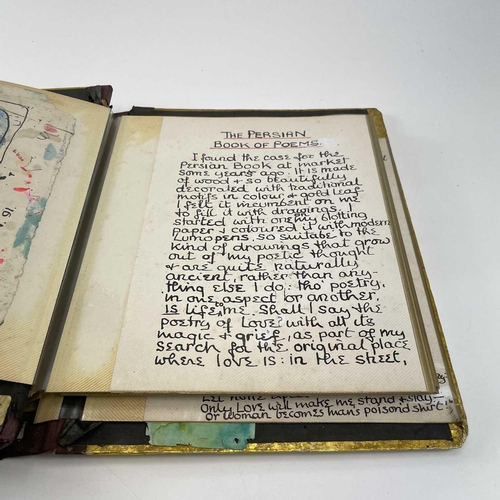 THE PERSIAN
BOOK OF POEMS.
I found the case for the
Persian Book at market
some years ago. It is made
of wood & so beautifully
decorated with traditional
motifs in colour & gold leaf
I felt it incumbent on me
to fill it with drawings. I
started with one my blotting
paper & coloured it with modern
Lumopens, so suitable to the
kind of drawings that grow
out of my poetic thought
& are quite naturally
ancient, rather than any-
thing else I do, tho' poetry,
in one aspect or another,
is life to me. Shall I say the
poetry of Love? with all its
magic & grief, as part of my
search for the original place
where love is: in the street,
Only Love will make me stand & stay
Or woman becomes man's poison'd shirt!
IS